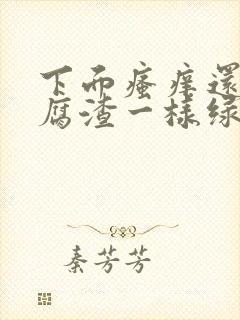 下面瘙痒還
腐渣一樣綠
秦芳芳